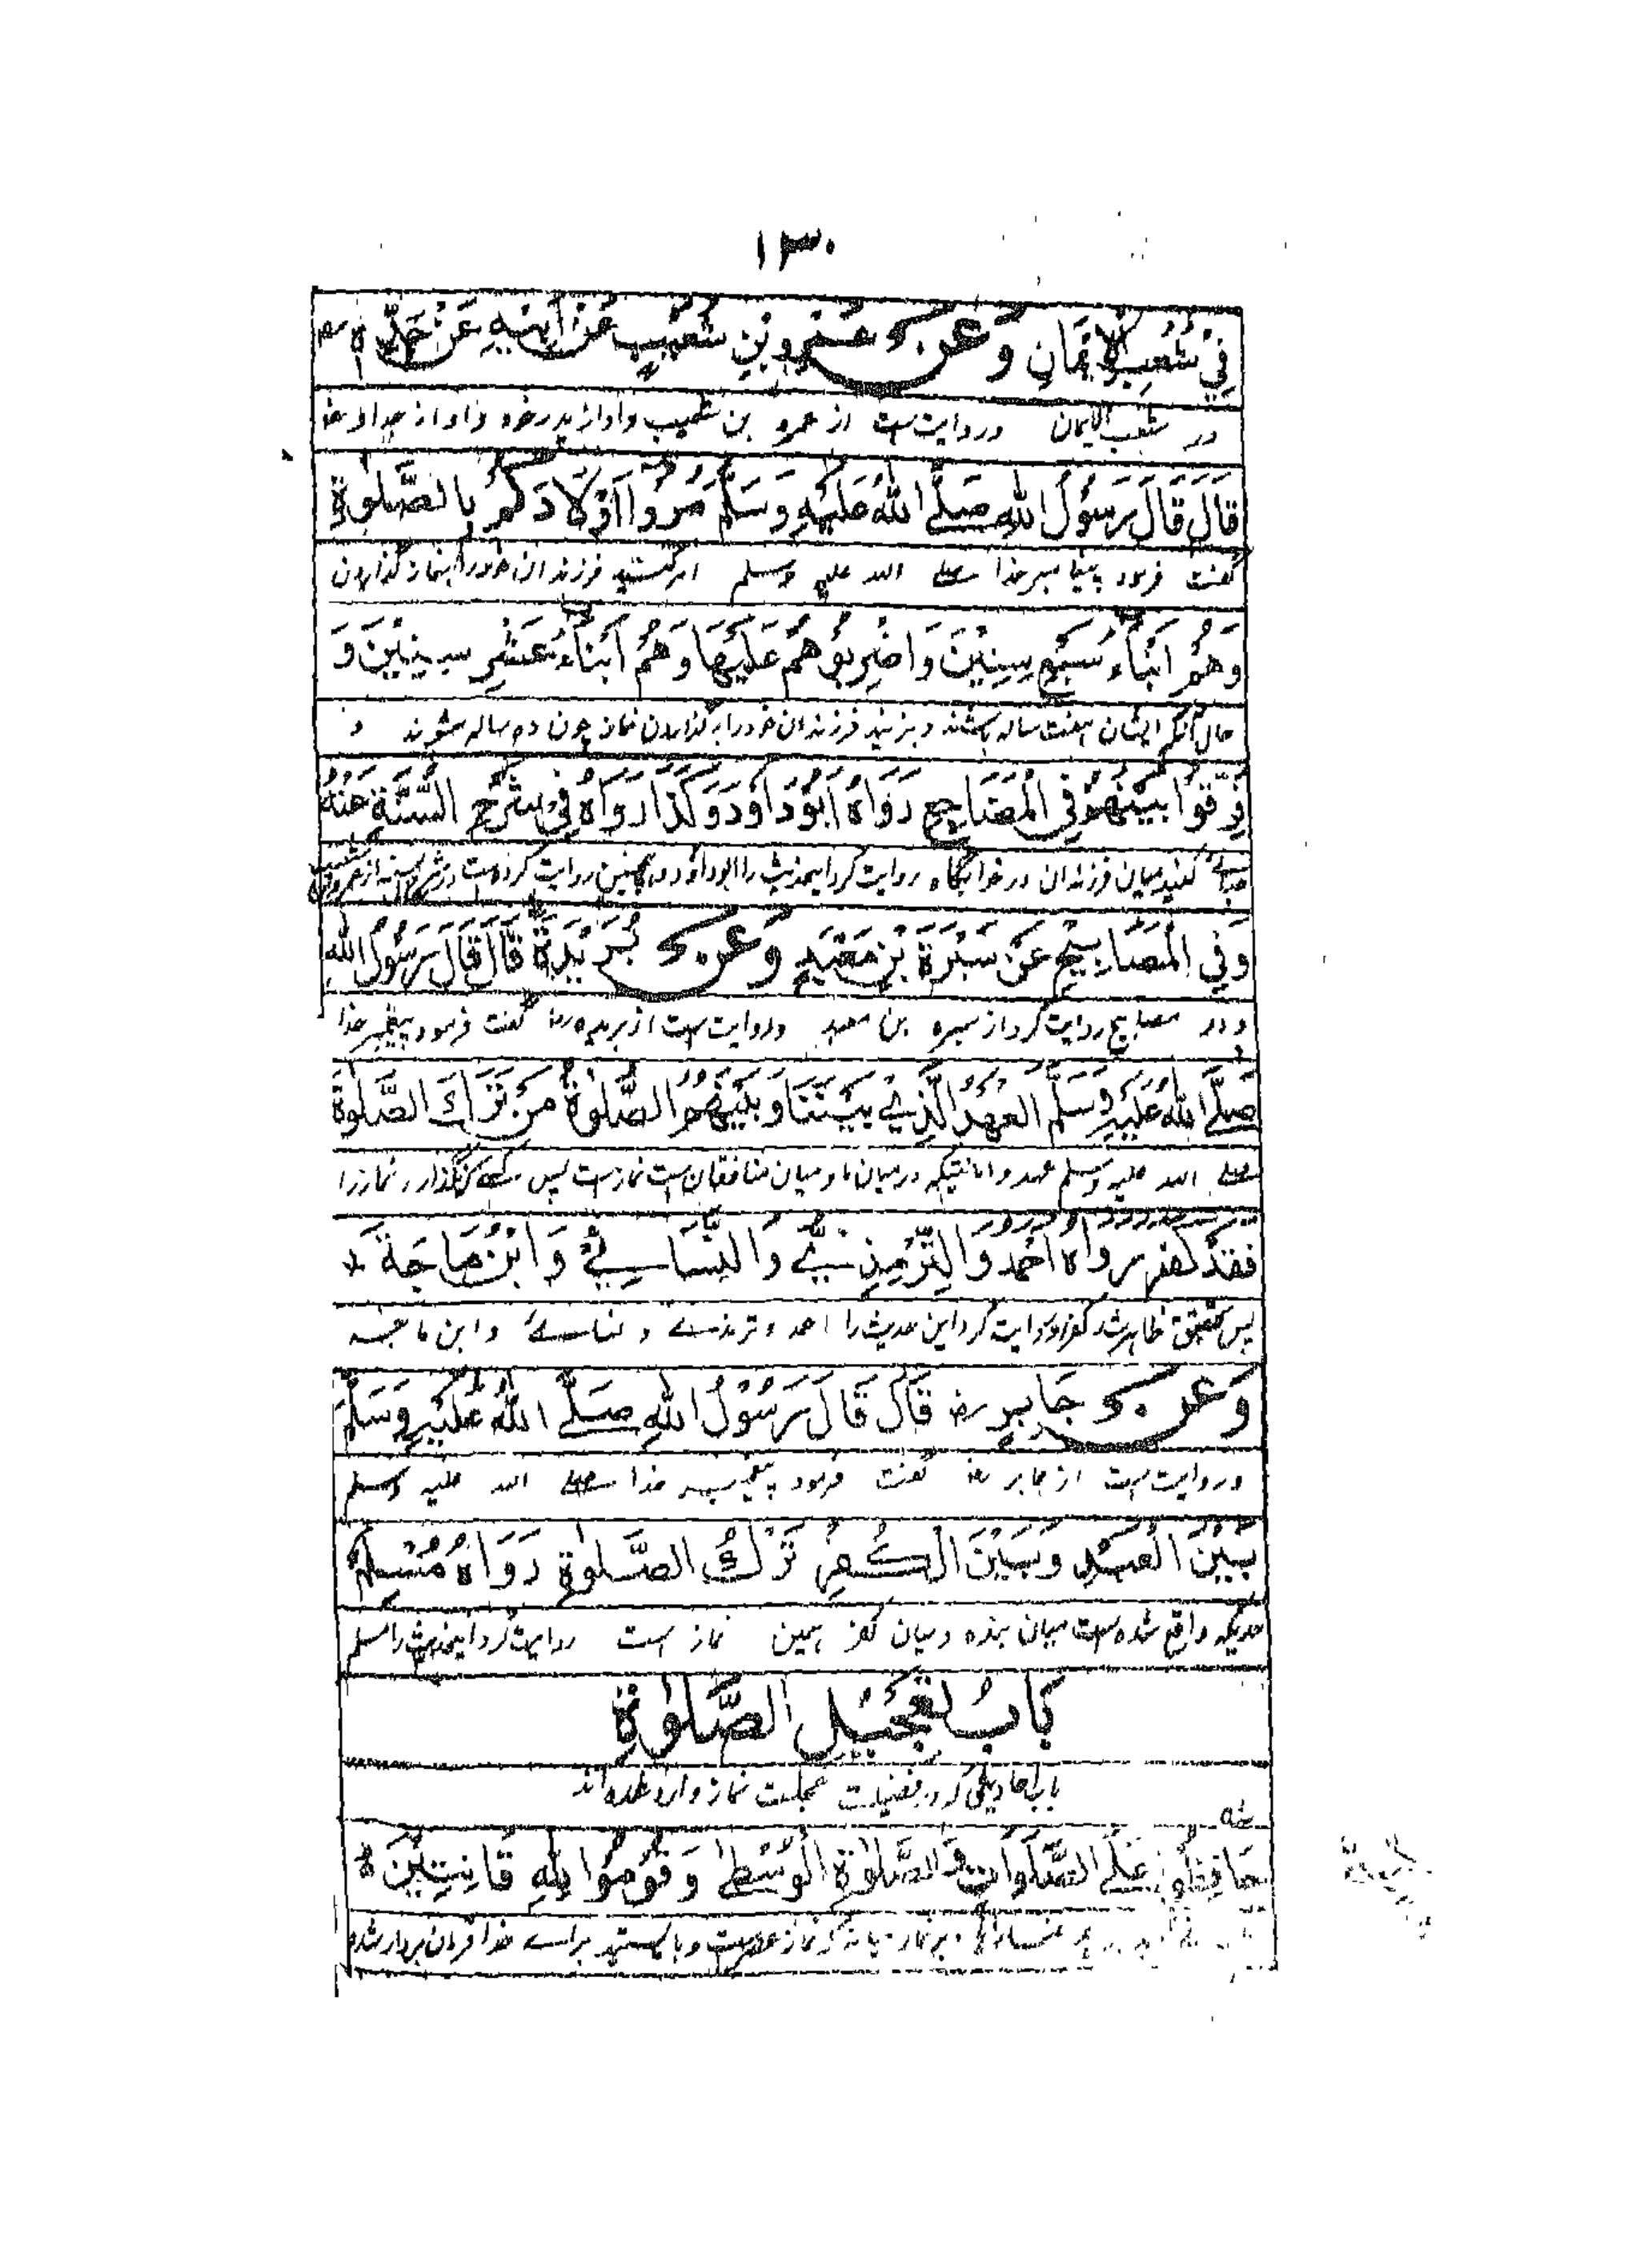 ١٣٠
فِيْ شُعَبِ الْاِيْمَانِ وَعَنْ عَمْرِو بْنِ شُعَيْبٍ عَنْ اَبِيْهِ عَنْ جَدِّهٖ رض
در شعب الایمان و روایت ست از عمرو بن شعیب و او از پدر خود و او از جد او رضا
قَالَ قَالَ رَسُوْلُ اللهِ صَلَّى اللهُ عَلَيْهِ وَسَلَّمَ مُرُوْا اَوْلَادَكُمْ بِالصَّلٰوةِ
گفت فرمود پیغامبر خدا صلے الله علیه وسلم امر کنید فرزندان خود را بنماز گذاردن
وَهُمْ اَبْنَاءُ سَبْعِ سِنِيْنَ وَاضْرِبُوْهُمْ عَلَيْهَا وَهُمْ اَبْنَاءُ عَشْرِ سِنِيْنَ وَ
حال آنکه ایشان هفت ساله باشند و بزنید فرزندان خود را بر گذاردن نماز چون ده ساله شوند و
فَرِّقُوْا بَيْنَهُمْ فِي الْمَضَاجِعِ رَوَاهُ اَبُوْدَاوُدَ وَكَذَا رَوَاهُ فِيْ شَرْحِ السُّنَّةِ عَنْهُ
جدائے کنید میان فرزندان در خوابگاه روایت کرد اینحدیث را ابوداؤد و همچنین روایت کرده است در شرح السنه از عمرو بن شعیب
وَفِي الْمَصَابِيْحِ عَنْ سَبْرَةَ بْنِ مَعْبَدٍ وَعَنْ بُرَيْدَةَ قَالَ قَالَ رَسُوْلُ اللهِ
و در مصابیح روایت کرد از سبره بن معبد و روایت ست از بریده رضا گفت فرمود پیغمبر خدا
صَلَّى اللهُ عَلَيْهِ وَسَلَّمَ الْعَهْدُ الَّذِيْ بَيْنَنَا وَبَيْنَهُمُ الصَّلٰوةُ مَنْ تَرَكَ الصَّلٰوةَ
صلے الله علیه وسلم عهد و امانتیکه در میان ما و میان منافقان ست نماز ست پس کسے که نگذارد نماز را
فَقَدْ كَفَرَ رَوَاهُ اَحْمَدُ وَالتِّرْمِذِيُّ وَالنَّسَائِيُّ وَابْنُ مَاجَةَ *
پس بتحقیق ظاهر شد کفر او روایت کرد این حدیث را احمد و ترمذے و نسائے و ابن ماجه
وَعَنْ جَابِرٍ رض قَالَ قَالَ رَسُوْلُ اللهِ صَلَّى اللهُ عَلَيْهِ وَسَلَّمَ
و روایت ست از جابر رض گفت فرمود پیغمبر خدا صلے الله علیه وسلم
بَيْنَ الْعَبْدِ وَبَيْنَ الْكُفْرِ تَرْكُ الصَّلٰوةِ رَوَاهُ مُسْلِمٌ
حدیکه واقع شده ست میان بنده و میان کفر همین نماز ست روایت کرد اینحدیث را مسلم
بَابُ تَعْجِيْلِ الصَّلٰوةِ
باب احادیثی که در فضیلت عجلت نماز وارد شده اند
حَافِظُوْا عَلَى الصَّلَوَاتِ وَالصَّلٰوةِ الْوُسْطٰى وَقُوْمُوْا لِلّٰهِ قَانِتِيْنَ ه
بر نماز میانه که نماز عصر ست و بایستید براے خدا فرمان بردار شده